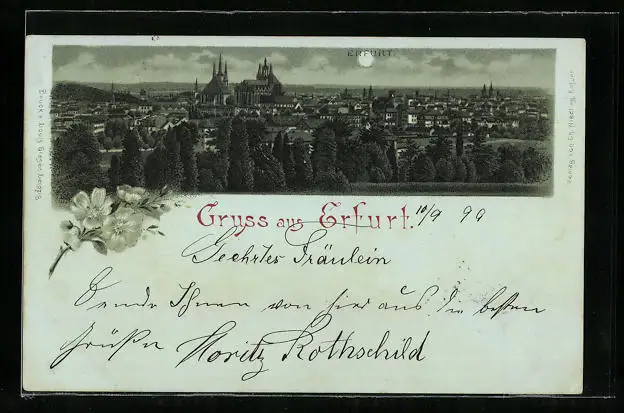 ERFURT.
Gruss aus Erfurt. 10/9 99
Geehrtes Fräulein
Sende Ihnen von hier aus die besten
Grüße Moritz Rothschild